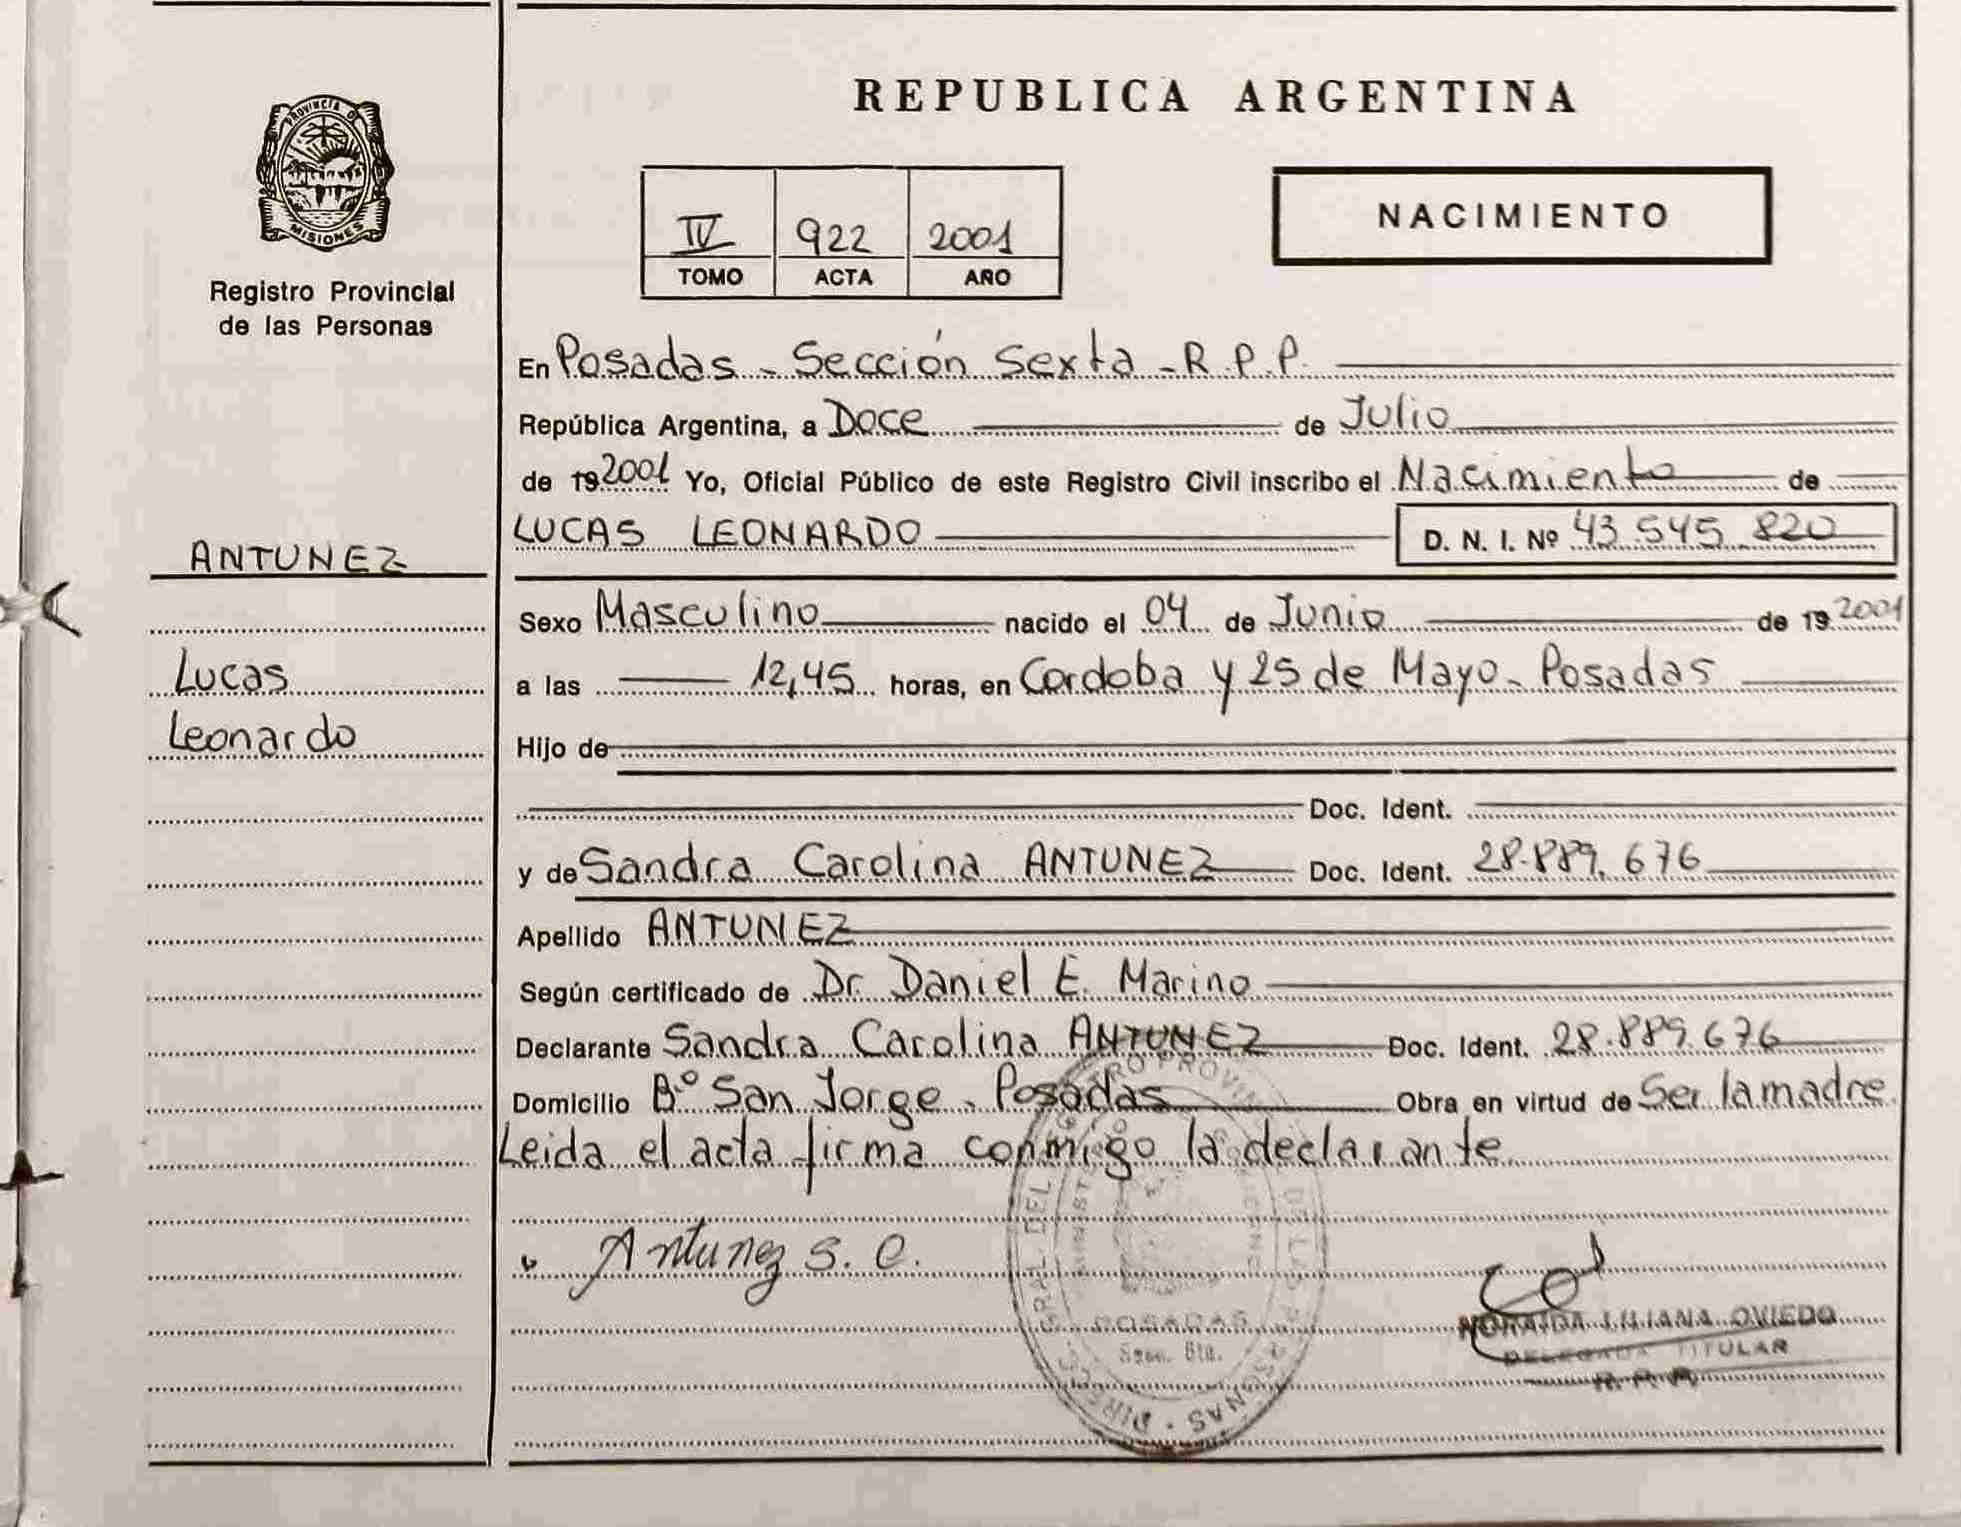 PROVINCIA DE
MISIONES
Registro Provincial
de las Personas
ANTUNEZ
Lucas
Leonardo
REPUBLICA ARGENTINA
IV 922 2001
TOMO ACTA AÑO
NACIMIENTO
En Posadas - Sección Sexta - R.P.P.
República Argentina, a Doce de Julio
de 19 2001 Yo, Oficial Público de este Registro Civil inscribo el Nacimiento de
LUCAS LEONARDO D. N. I. Nº 43.545.820
Sexo Masculino nacido el 04 de Junio de 19 2001
a las 12,45 horas, en Cordoba y 25 de Mayo - Posadas
Hijo de
Doc. Ident.
y de Sandra Carolina ANTUNEZ Doc. Ident. 28.889.676
Apellido ANTUNEZ
Según certificado de Dr. Daniel E. Marino
Declarante Sandra Carolina ANTUNEZ Doc. Ident. 28.889.676
Domicilio Bº San Jorge - Posadas Obra en virtud de Ser la madre
Leida el acta firma conmigo la declarante
Antunez S. C.
POSADAS
NORAIDA LILIANA OVIEDO
DELEGADA TITULAR
R. P. P.